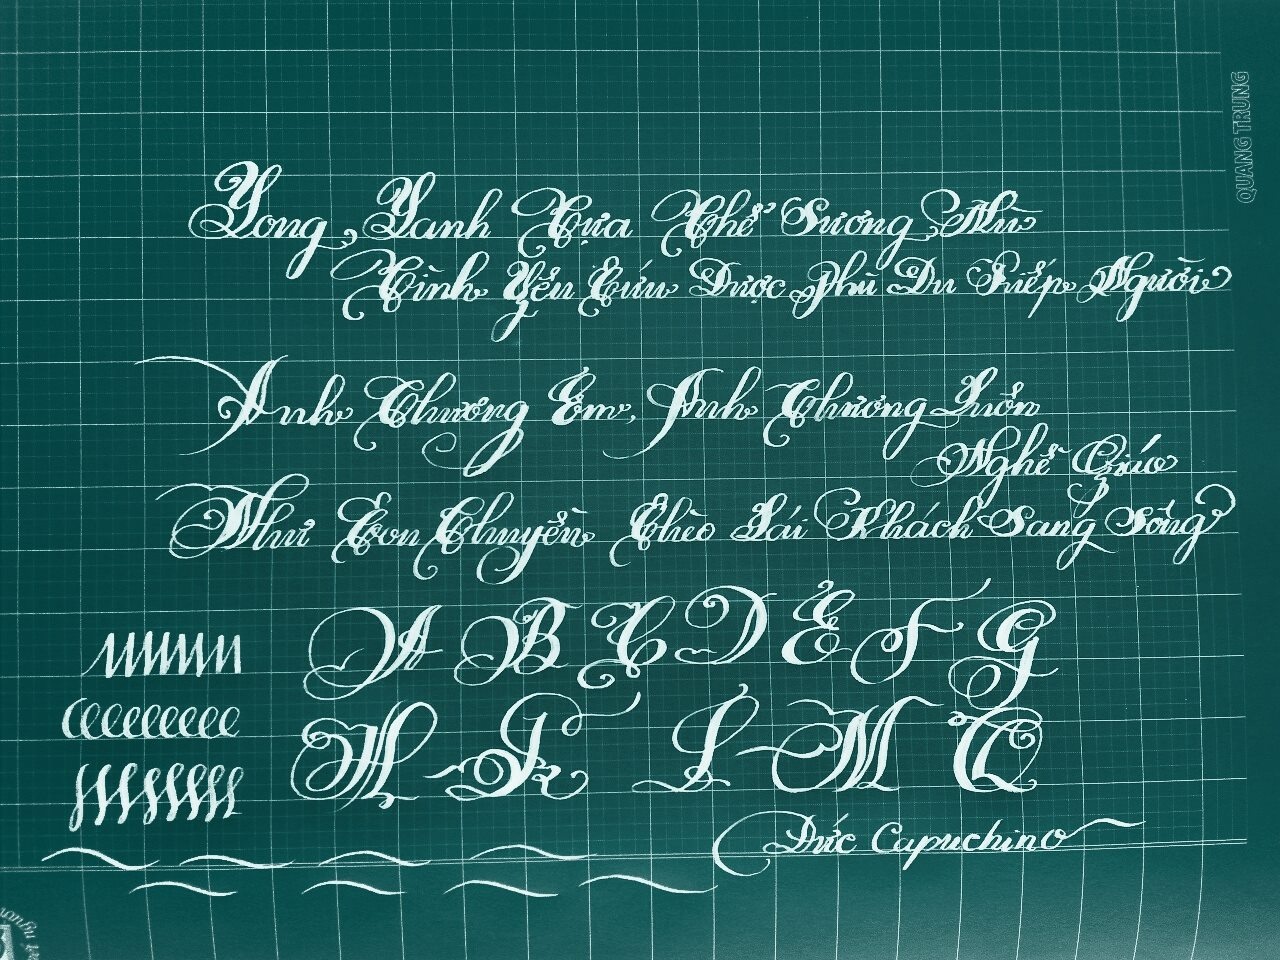 Long, Lanh Tựa Thể Sương Mù
Tình Yếu Cứu Được Phù Du Kiếp Người
Anh Thương Em, Anh Thương Luôn
Nghề Giáo
Như Con Thuyền Chèo Lái Khách Sang Sông
A B C D E F G
H K L M Q
Đức Capuchino
QUANG TRUNG